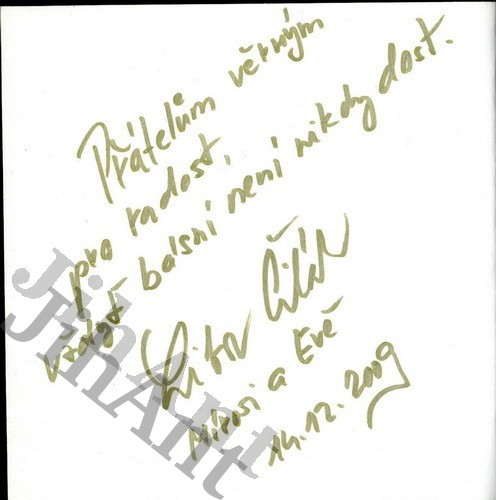 Přátelům věrným
pro radost,
vždyť básní není nikdy dost.
Čilák
Mirosi a Evě
14.12.2009
JihAnt